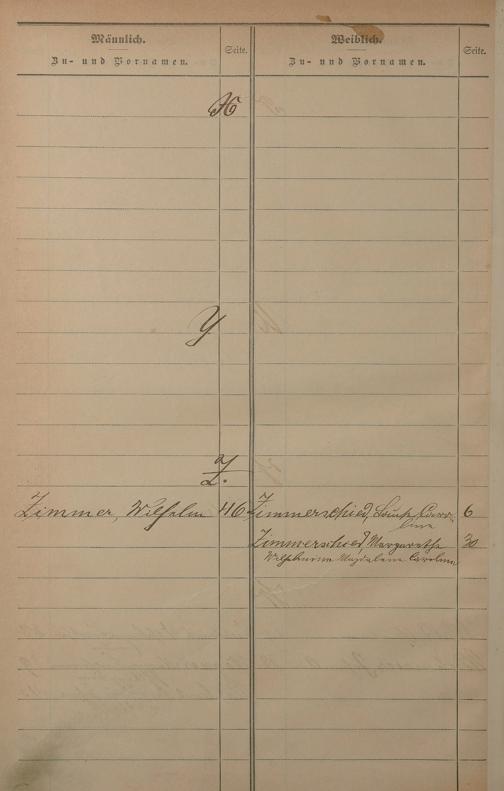 Männlich.
Zu- und Vornamen.
Seite.
Weiblich.
Zu- und Vornamen.
Seite.
X
Y
Z.
Zimmer, Wilhelm 46
Zimmerschied, Caro- 6
line
Zimmerschied, Margarethe 30
Wilhelmine Magdalena Caroline